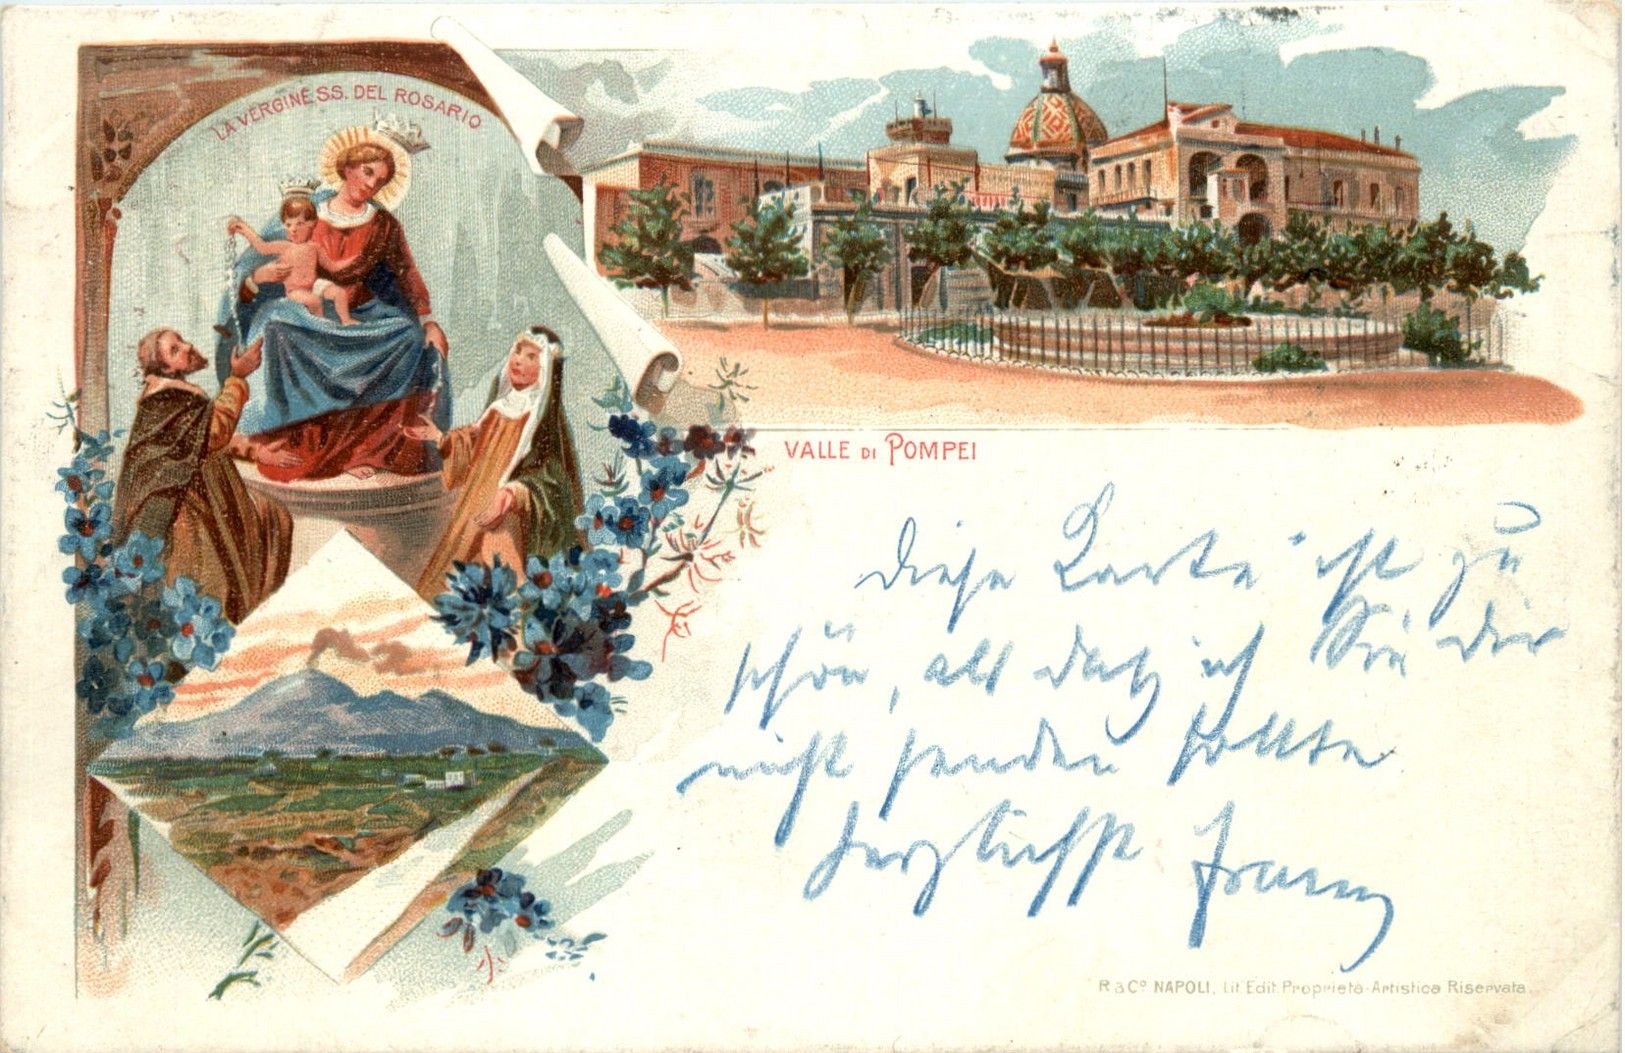 LA VERGINE S.S. DEL ROSARIO
VALLE DI POMPEI
Diese Karte ist zu
schön, als daß ich sie Dir
nicht senden sollte
Herzlichst Franz
R & Cº NAPOLI, Lit. Edit. Proprietà Artistica Riservata.